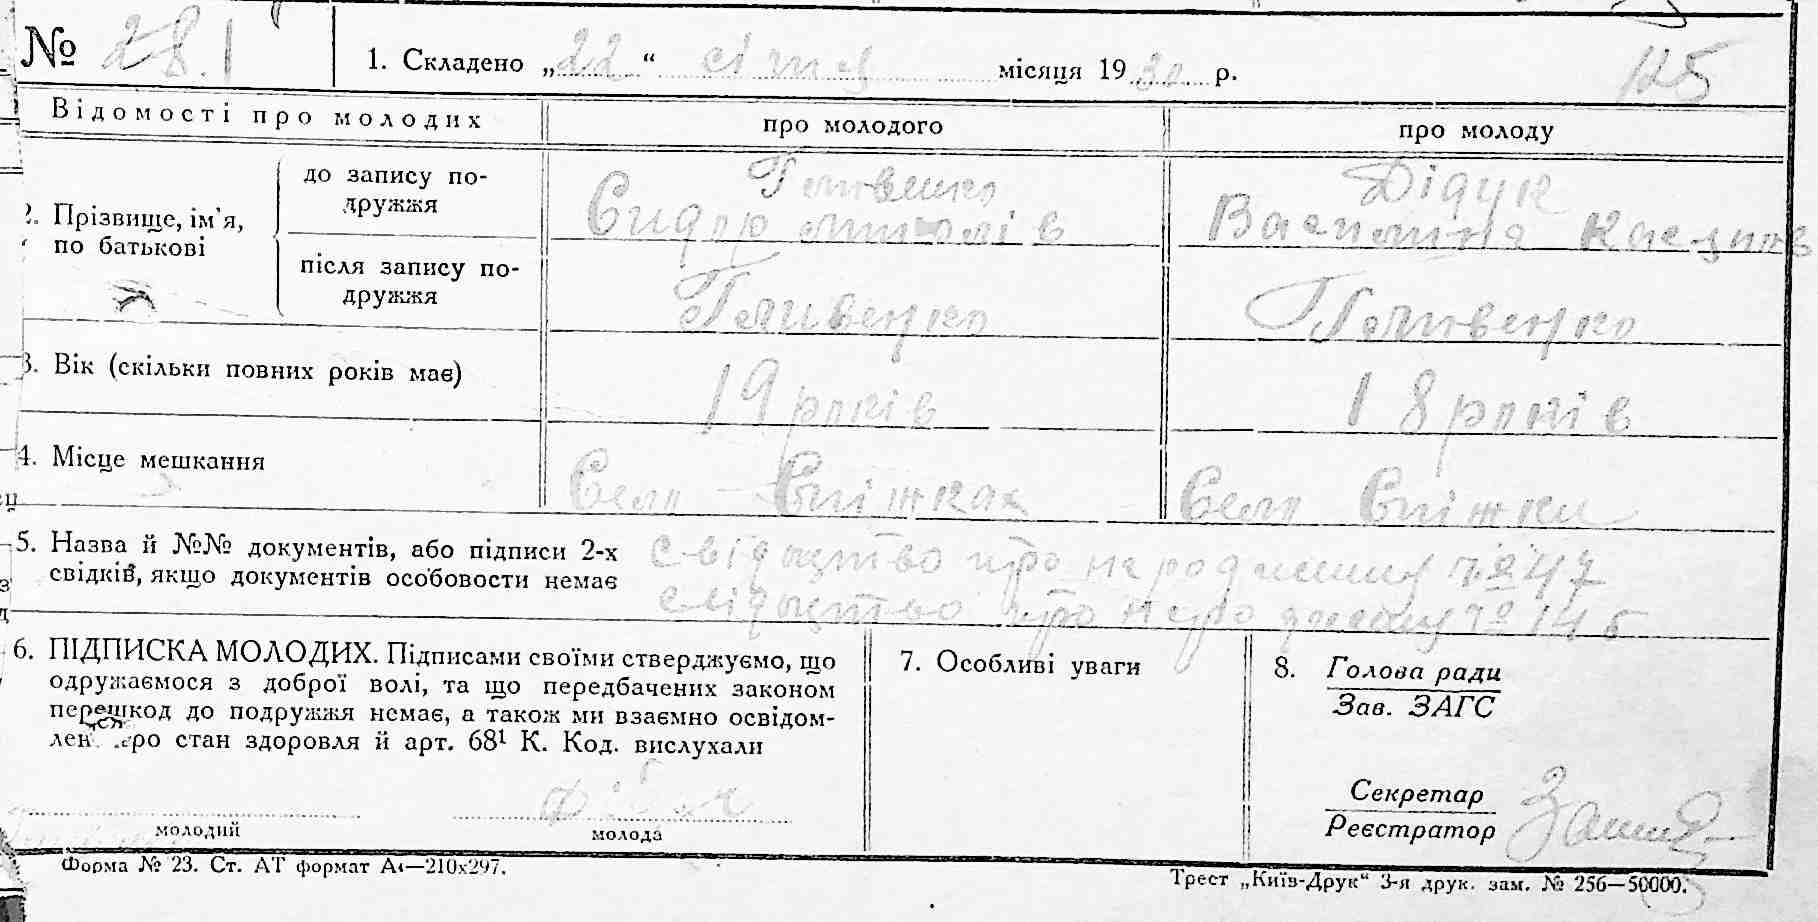 № 28.1
1. Складено „22“ січня місяця 1930 р.
125
Відомості про молодих
про молодого
про молоду
2. Прізвище, ім'я, по батькові
до запису подружжя
Гливенко
Сидор
Дідук
Василина
після запису подружжя
Гливенко
Гливенко
3. Вік (скільки повних років має)
19 років
18 років
4. Місце мешкання
Село Сніжках
Село Сніжки
5. Назва й №№ документів, або підписи 2-х
свідків, якщо документів особовости немає
свідоцтво про народження № 47
свідоцтво про народження № 146
6. ПІДПИСКА МОЛОДИХ. Підписами своїми стверджуємо, що
одружаємося з доброї волі, та що передбачених законом
перешкод до подружжя немає, а також ми взаємно освідом-
лен про стан здоровля й арт. 68¹ К. Код. вислухали
молодий
молода
7. Особливі уваги
8. Голова ради
Зав. ЗАГС
Секретар
Реєстратор
Форма № 23. Ст. АТ формат А4—210х297.
Трест „Київ-Друк“ 3-я друк. зам. № 256—50000.